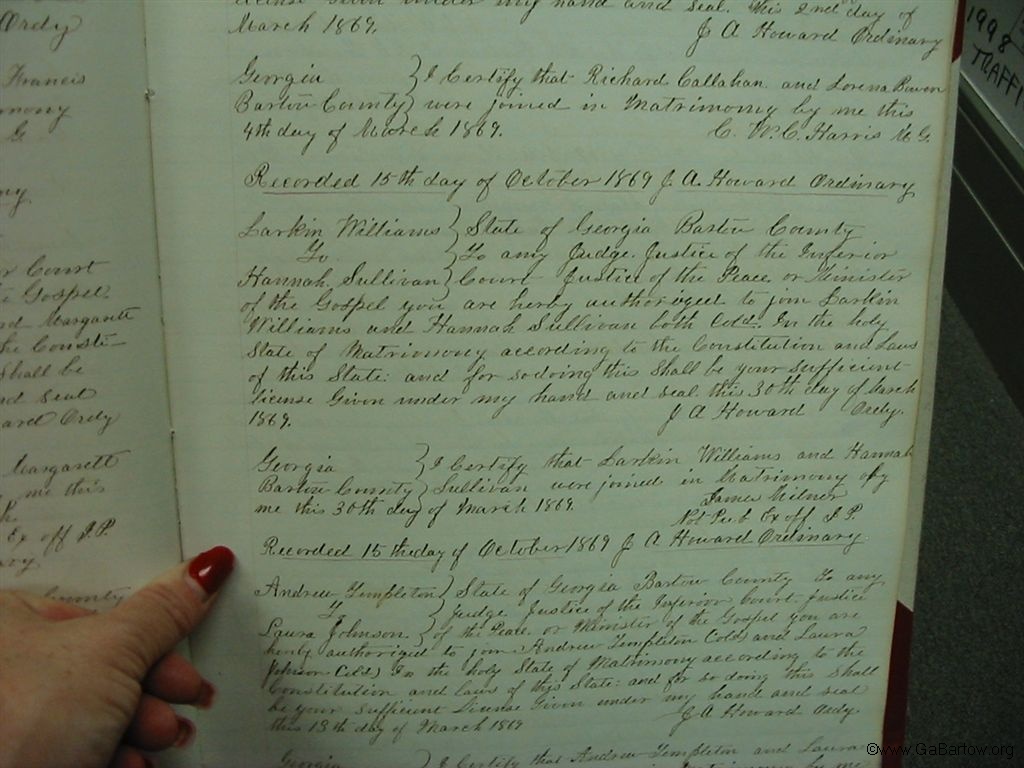 Ordy
Francis
G.
r Court
Gospel.
nd Margarett
he Consti-
shall be
nd seal
ard Ordy
Margarett
me this
Ex off J.P.
County
license given under my hand and seal. This 2nd day of
March 1869.
J A Howard Ordinary
Georgia } I Certify that Richard Callahan and Lorena Bowen
Bartow County } were joined in Matrimony by me this
4th day of March 1869.
C. W. C. Harris M G.
Recorded 15th day of October 1869 J A. Howard Ordinary
Larkin Williams } State of Georgia Bartow County
To } To any Judge. Justice of the Inferior
Hannah. Sullivan } Court Justice of the Peace or Minister
of the Gospel you are herby authorized to join Larkin
Williams and Hannah Sullivan both Cold. In the holy
State of Matrimony according to the Constitution and Laws
of this State: and for so doing this Shall be your sufficient
license Given under my hand and seal this 30th day of March
1869.
J A Howard Ordy.
Georgia } I Certify that Larkin Williams and Hannah
Bartow County } Sullivan were joined in Matrimony by
me this 30th day of March 1869.
James Milner
Not Pub Ex off. J. P.
Recorded 15th day of October 1869 J A Howard Ordinary
Andrew Templeton } State of Georgia Bartow County To any
To } Judge Justice of the Inferior Court Justice
Laura Johnson. } of the Peace or Minister of the Gospel you are
herby authorized to join Andrew Templeton Cold) and Laura
Johnson Cold.) In the holy State of Matrimony according to the
Constitution and laws of this State: and for so doing this shall
be your sufficient License Given under my hand and seal
this 13th day of March 1869
J A Howard Ordy.
Georgia } I Certify that Andrew Templeton and Laura
by me
1998
TRAFFI
©www.GaBartow.org